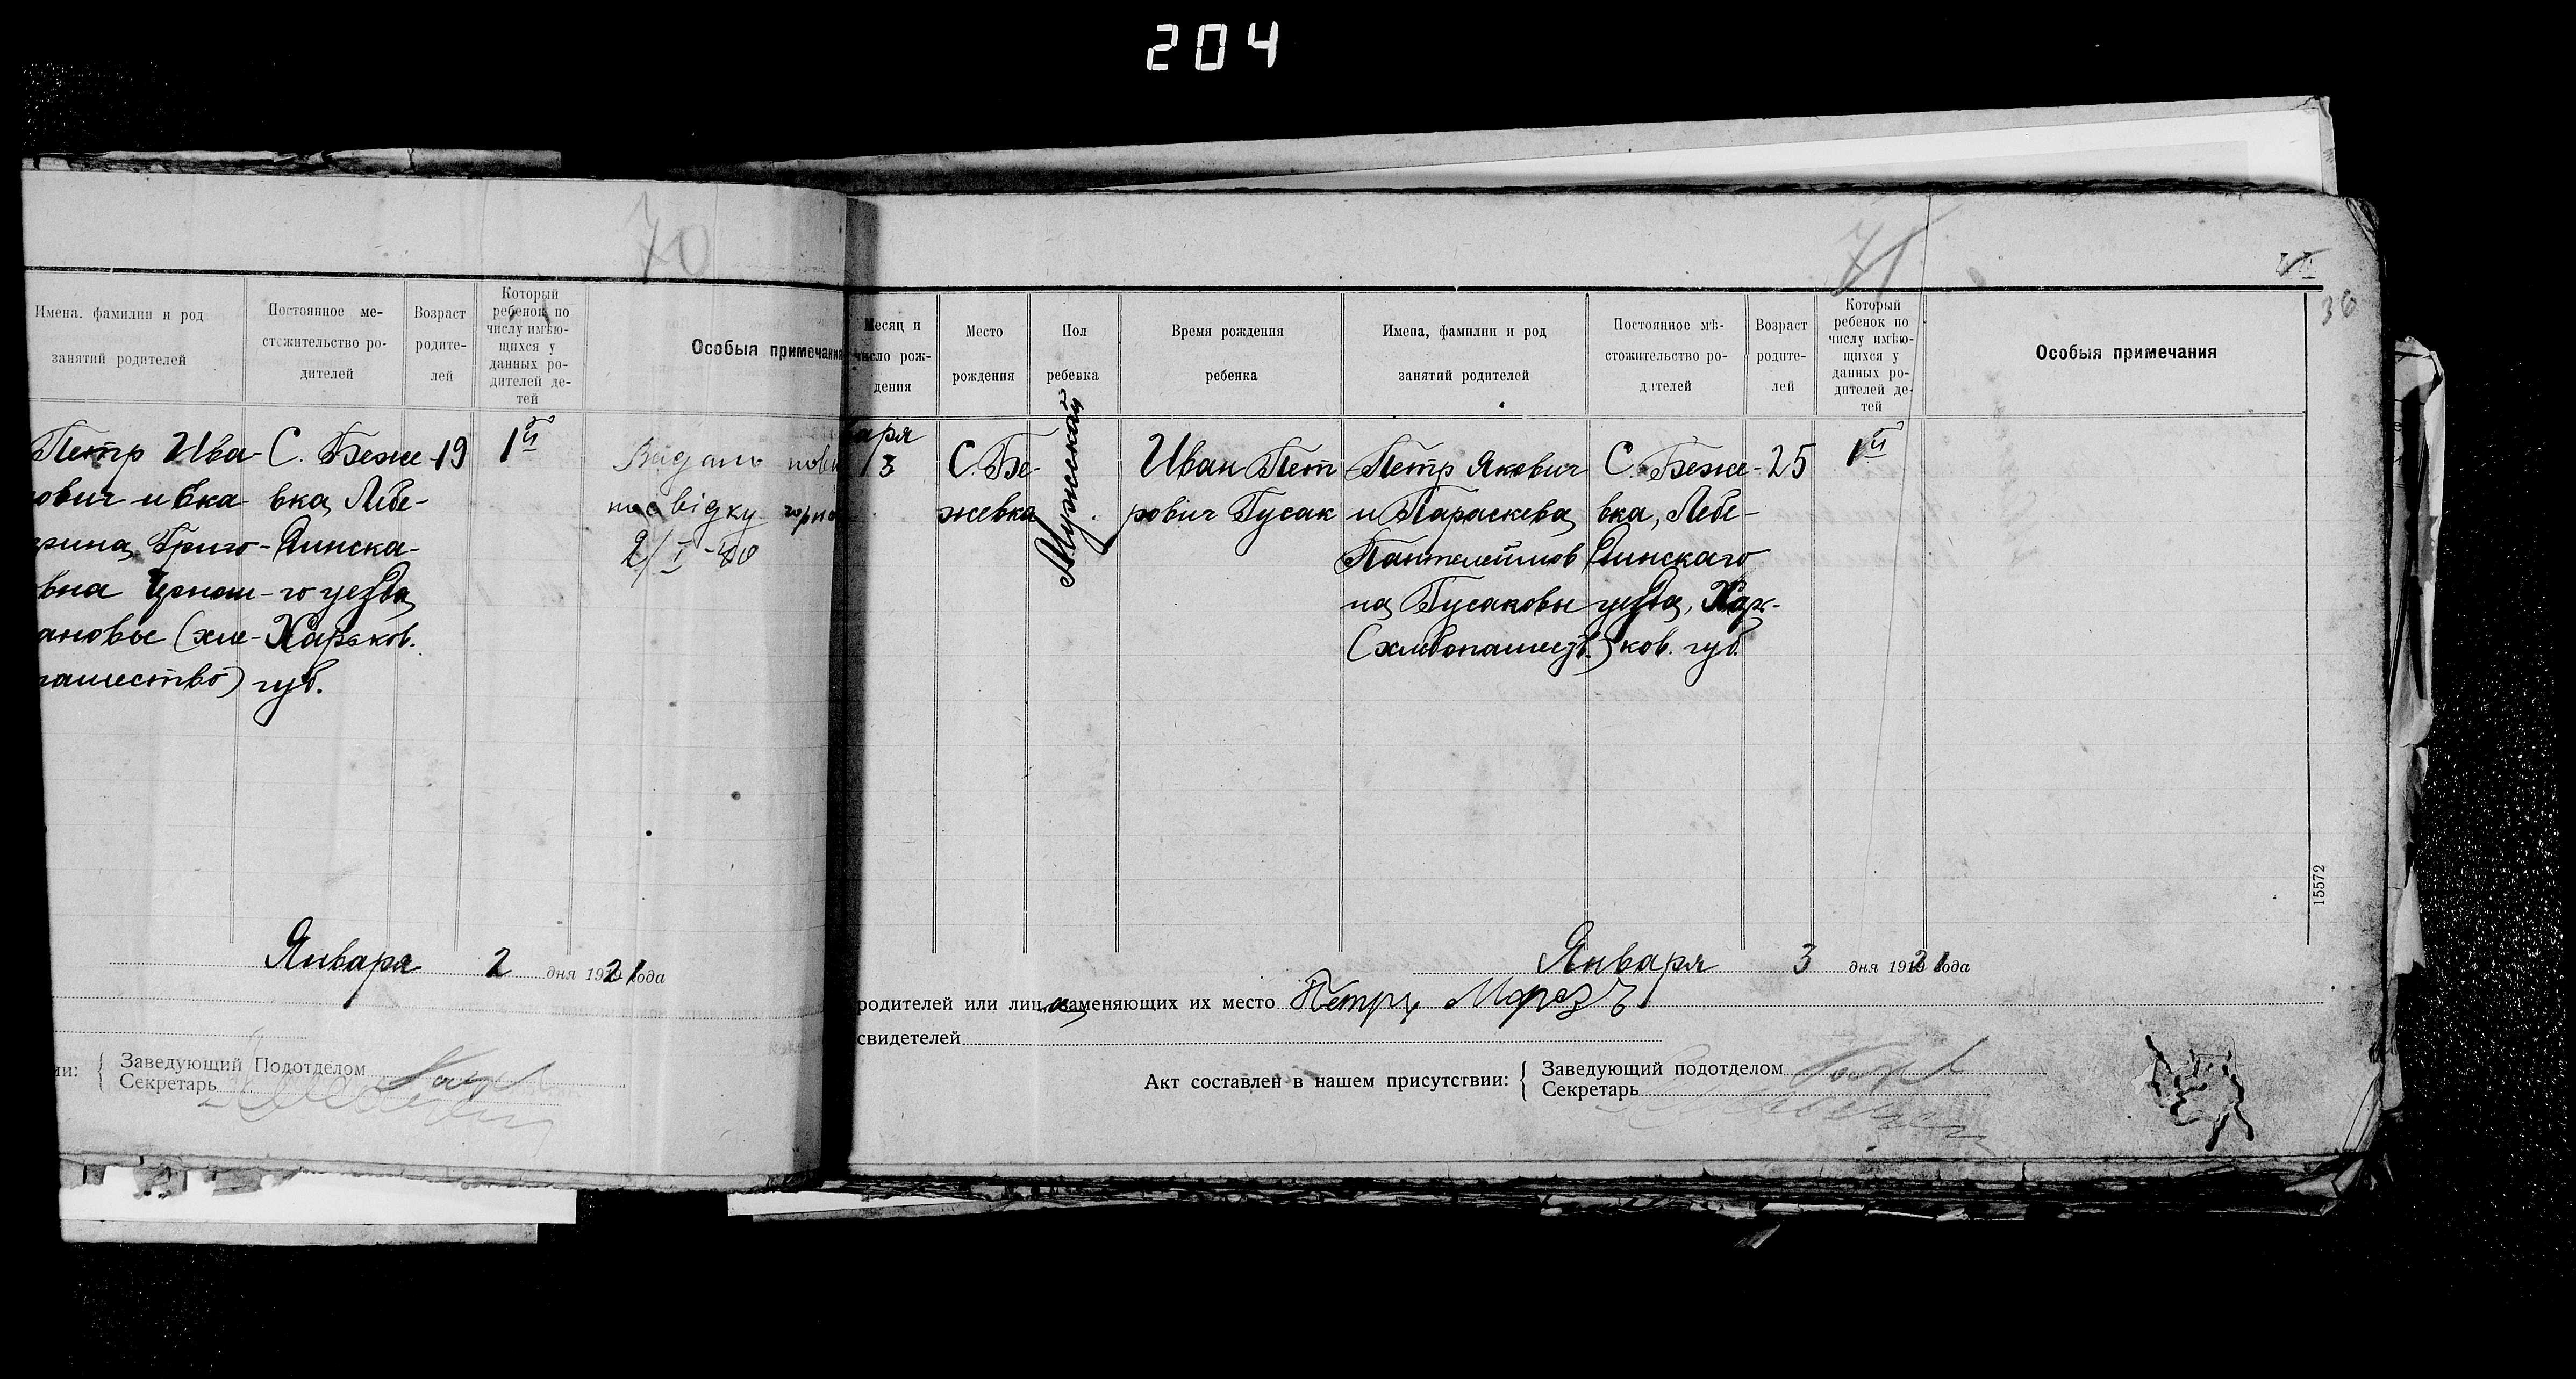 204
70
Имена, фамилии и род
занятий родителей
Постоянное ме-
стожительство ро-
дителей
Возраст
родите-
лей
Который
ребенок по
числу имѣю-
щихся у
данных ро-
дителей де-
тей
Особыя примечания
Петр Ива-
ович и Ека-
рина Григо-
вна
ановы (хле-
пашество)
С. Беже-
вка, Лебе-
динска-
го уезда
Харьков.
губ.
19
1й
Видано
посвідку
2/I-40
Января 2 дня 1921 года
Заведующий Подотделом
Секретарь
71
36
Месяц и
число рож-
дения
Место
рождения
Пол
ребенка
Время рождения
ребенка
Имена, фамилии и род
занятий родителей
Постоянное мѣ-
стожительство ро-
дителей
Возраст
родите-
лей
Который
ребенок по
числу имѣю-
щихся у
данных ро-
дителей де-
тей
Особыя примечания
аря
3
С. Бе-
жевка
Мужской
Иван Пет
рович Гусак
Петр Якович
и Параскева
Пантелеймов
на Гусаковы
(хлебопашеств.)
С. Беже-
вка, Лебе-
динскаго
уезда, Харь-
ков. губ.
25
1й
15572
Января 3 дня 1921 года
родителей или лиц, заменяющих их место Петръ Морозъ
свидетелей
Акт составлен в нашем присутствии:
Заведующий подотделом
Секретарь